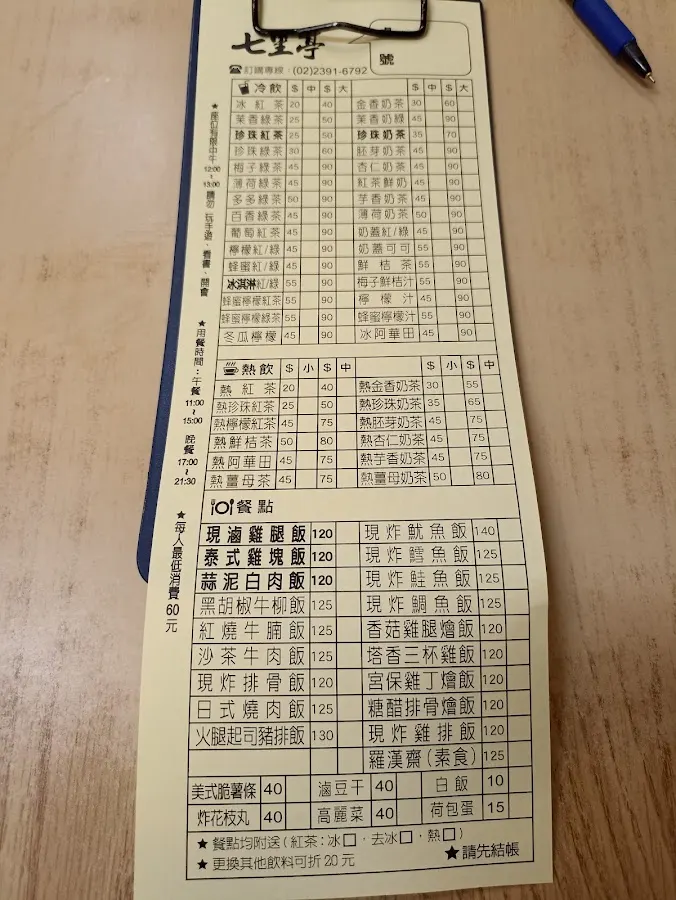 七里亭
號
☎訂購專線：(02)2391-6792
冷飲 $ 中 $ 大 $ 中 $ 大
冰紅茶 20 40 金香奶茶 30 60
茉香綠茶 25 50 茉香奶綠 45 90
珍珠紅茶 25 50 珍珠奶茶 35 70
珍珠綠茶 30 60 胚芽奶茶 45 90
梅子綠茶 45 90 杏仁奶茶 45 90
薄荷綠茶 45 90 紅茶鮮奶 45 90
多多綠茶 50 90 芋香奶茶 45 90
百香綠茶 45 90 薄荷奶茶 50 90
葡萄紅茶 45 90 奶蓋紅/綠 45 90
檸檬紅/綠 45 90 奶蓋可可 55 90
蜂蜜紅/綠 45 90 鮮桔茶 55 90
紅/綠 55 90 梅子鮮桔汁 55 90
蜂蜜檸檬紅茶 55 90 檸檬汁 45 90
蜂蜜檸檬綠茶 55 90 蜂蜜檸檬汁 55 90
冬瓜檸檬 45 90 冰阿華田 45 90
熱飲 $ 小 $ 中 $ 小 $ 中
熱紅茶 20 40 熱金香奶茶 30 55
熱珍珠紅茶 25 50 熱珍珠奶茶 35 65
熱檸檬紅茶 45 75 熱胚芽奶茶 45 75
熱鮮桔茶 50 80 熱杏仁奶茶 45 75
熱阿華田 45 75 熱芋香奶茶 45 75
熱薑母茶 45 75 熱薑母奶茶 50 80
餐點
現滷雞腿飯 120 現炸魷魚飯 140
泰式雞塊飯 120 現炸鱈魚飯 125
蒜泥白肉飯 120 現炸鮭魚飯 125
黑胡椒牛柳飯 125 現炸鯛魚飯 125
紅燒牛腩飯 125 香菇雞腿燴飯 120
沙茶牛肉飯 125 塔香三杯雞飯 120
現炸排骨飯 120 宮保雞丁燴飯 120
日式燒肉飯 125 糖醋排骨燴飯 120
火腿起司豬排飯 130 現炸雞排飯 120
羅漢齋(素食) 125
美式脆薯條 40 滷豆干 40 白飯 10
炸花枝丸 40 高麗菜 40 荷包蛋 15
★餐點均附送(紅茶:冰□．去冰□．熱□)
★更換其他飲料可折20元 ★請先結帳
12:00~13:00請勿 玩手遊、看書、開會
★用餐時間：午餐11:00~15:00 晚餐17:00~21:30
★每人最低消費60元